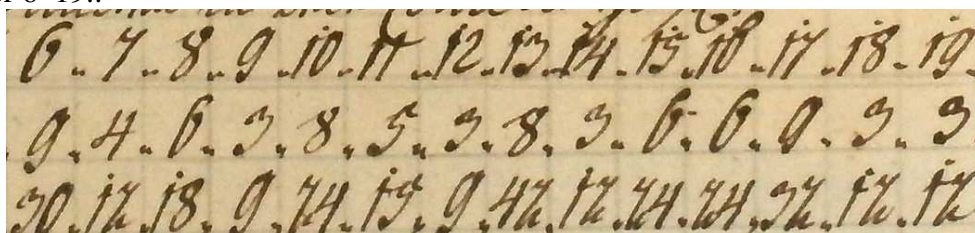 6 . 7 . 8 . 9 . 10 . 11 . 12 . 13 . 14 . 15 . 16 . 17 . 18 . 19
9 . 4 . 6 . 3 . 8 . 5 . 3 . 8 . 3 . 6 . 6 . 9 . 3 . 3
30 . 12 . 18 . 9 . 24 . 15 . 9 . 42 . 12 . 24 . 24 . 32 . 12 . 12